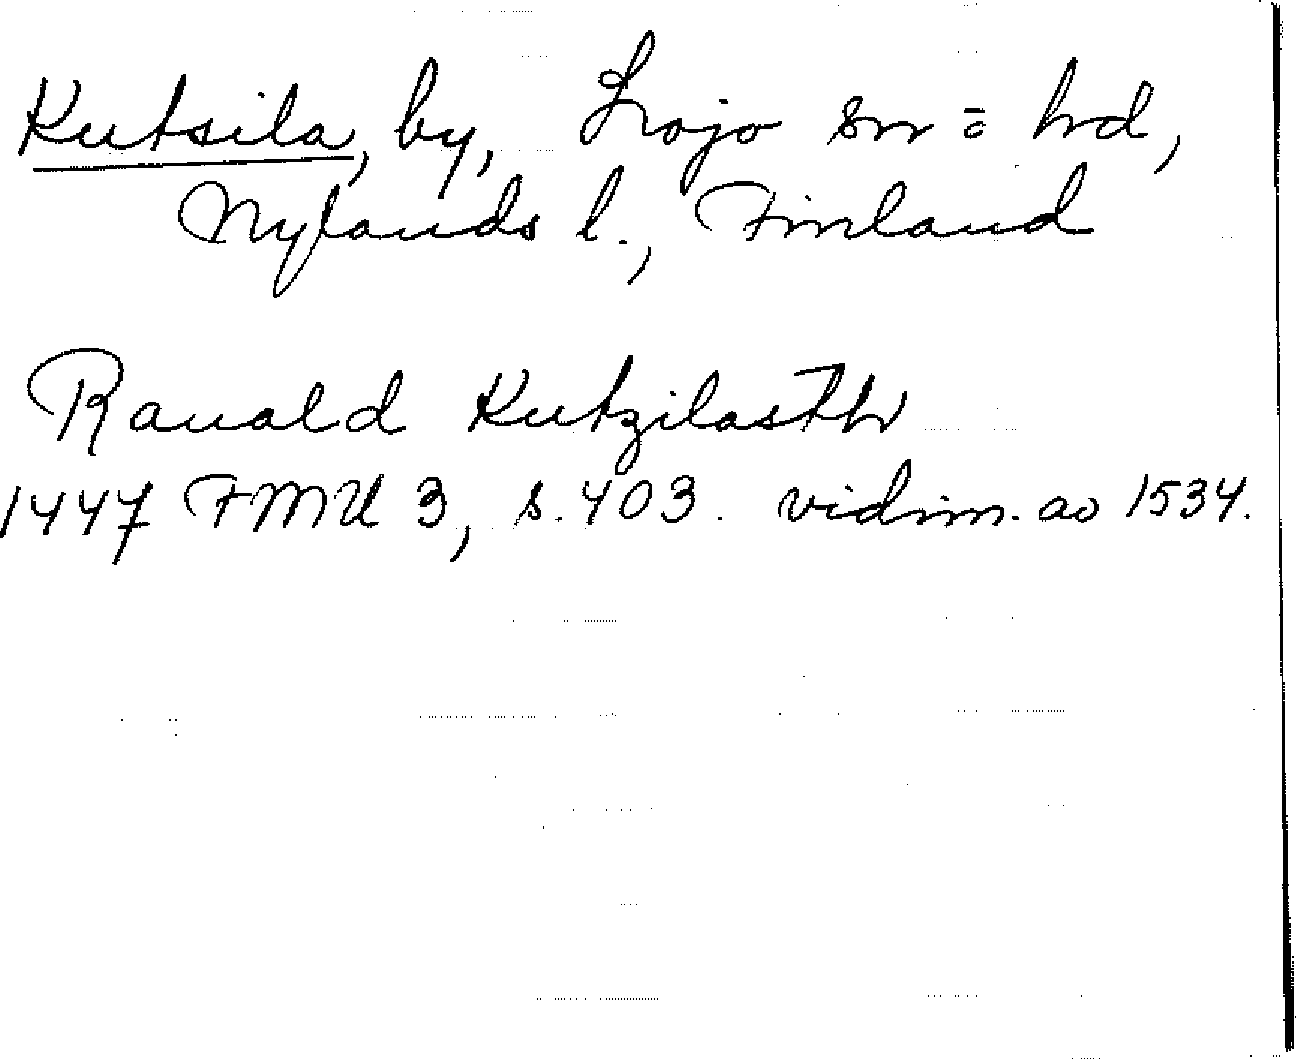 Kutsila, by, Lojo sn o hd,
Nylands l., Finland
Ranald Kutzilasth
1447 FMU 3, s. 403. vidim. av 1534.